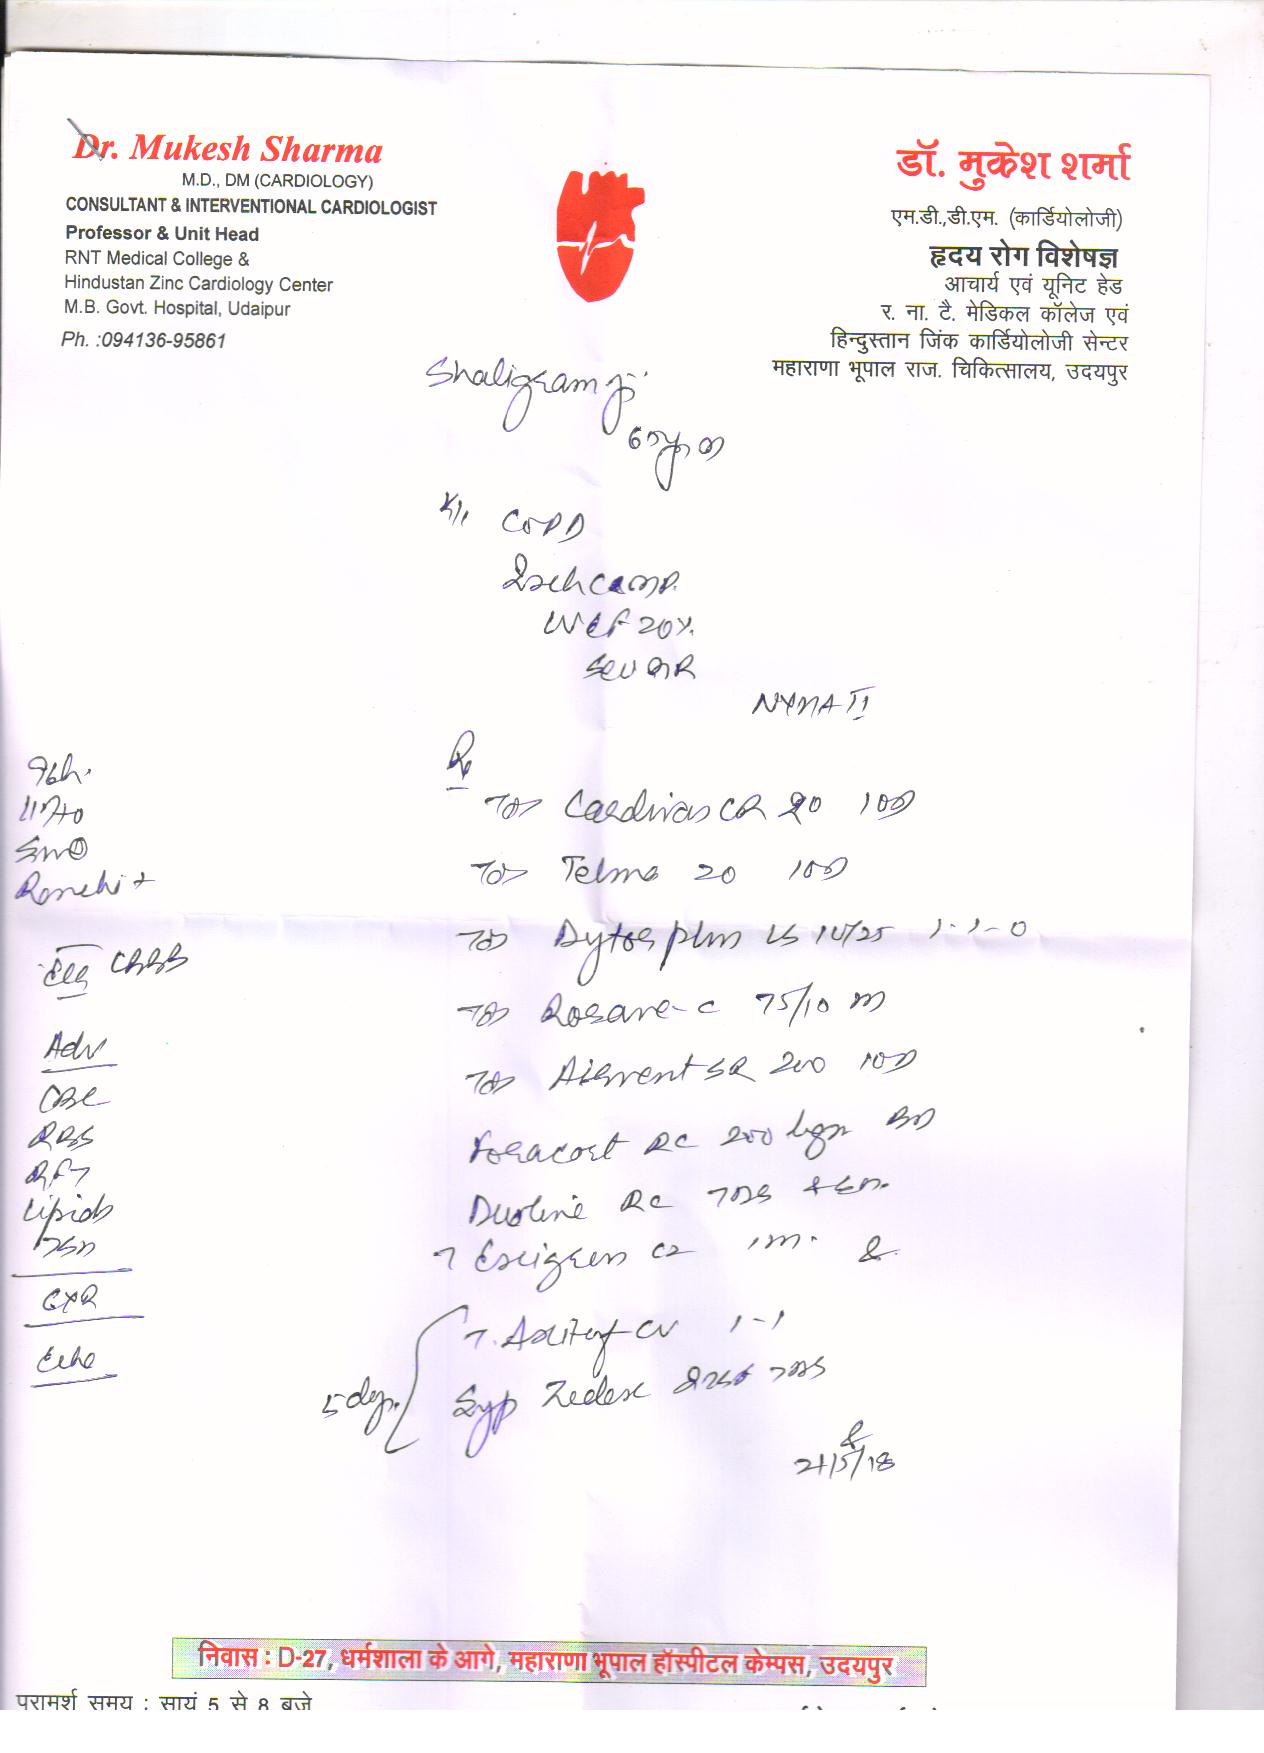 Dr. Mukesh Sharma
M.D., DM (CARDIOLOGY)
CONSULTANT & INTERVENTIONAL CARDIOLOGIST
Professor & Unit Head
RNT Medical College &
Hindustan Zinc Cardiology Center
M.B. Govt. Hospital, Udaipur
Ph. :094136-95861
डॉ. मुकेश शर्मा
एम.डी.,डी.एम. (कार्डियोलोजी)
हृदय रोग विशेषज्ञ
आचार्य एवं यूनिट हेड
र. ना. टै. मेडिकल कॉलेज एवं
हिन्दुस्तान जिंक कार्डियोलोजी सेन्टर
महाराणा भूपाल राज. चिकित्सालय, उदयपुर
Shaligram ji
COPD
LVEF 20%
Sev MR
NYHA II
96/m
Ronchi +
ECG LBBB
Adv
CBC
RBS
RFT
Lipids
TSH
CXR
Echo
Rx
Tab Cardivas CR 20 1OD
Tab Telma 20 1OD
Tab Dytor plus LS 10/25 1-1-0
Tab Rosave-C 75/10
Tab 200 1OD
Foracort RC 200 BD
Duoline RC TDS
T
T. CV 1-1
Syp Zedex TDS
5 days
21/5/18
निवास : D-27, धर्मशाला के आगे, महाराणा भूपाल हॉस्पीटल केम्पस, उदयपुर
परामर्श समय : सायं 5 से 8 बजे